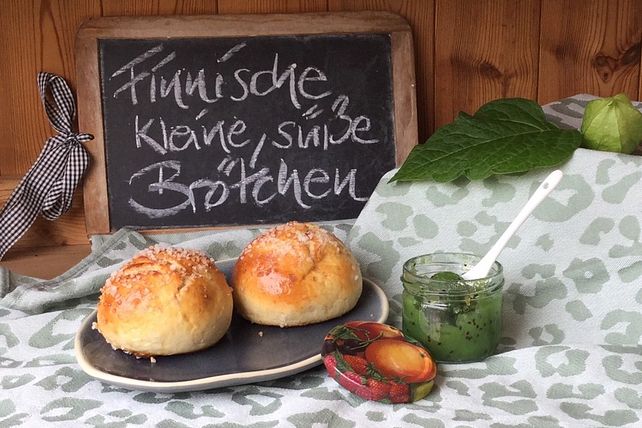 Finnische
kleine, süße
Brötchen